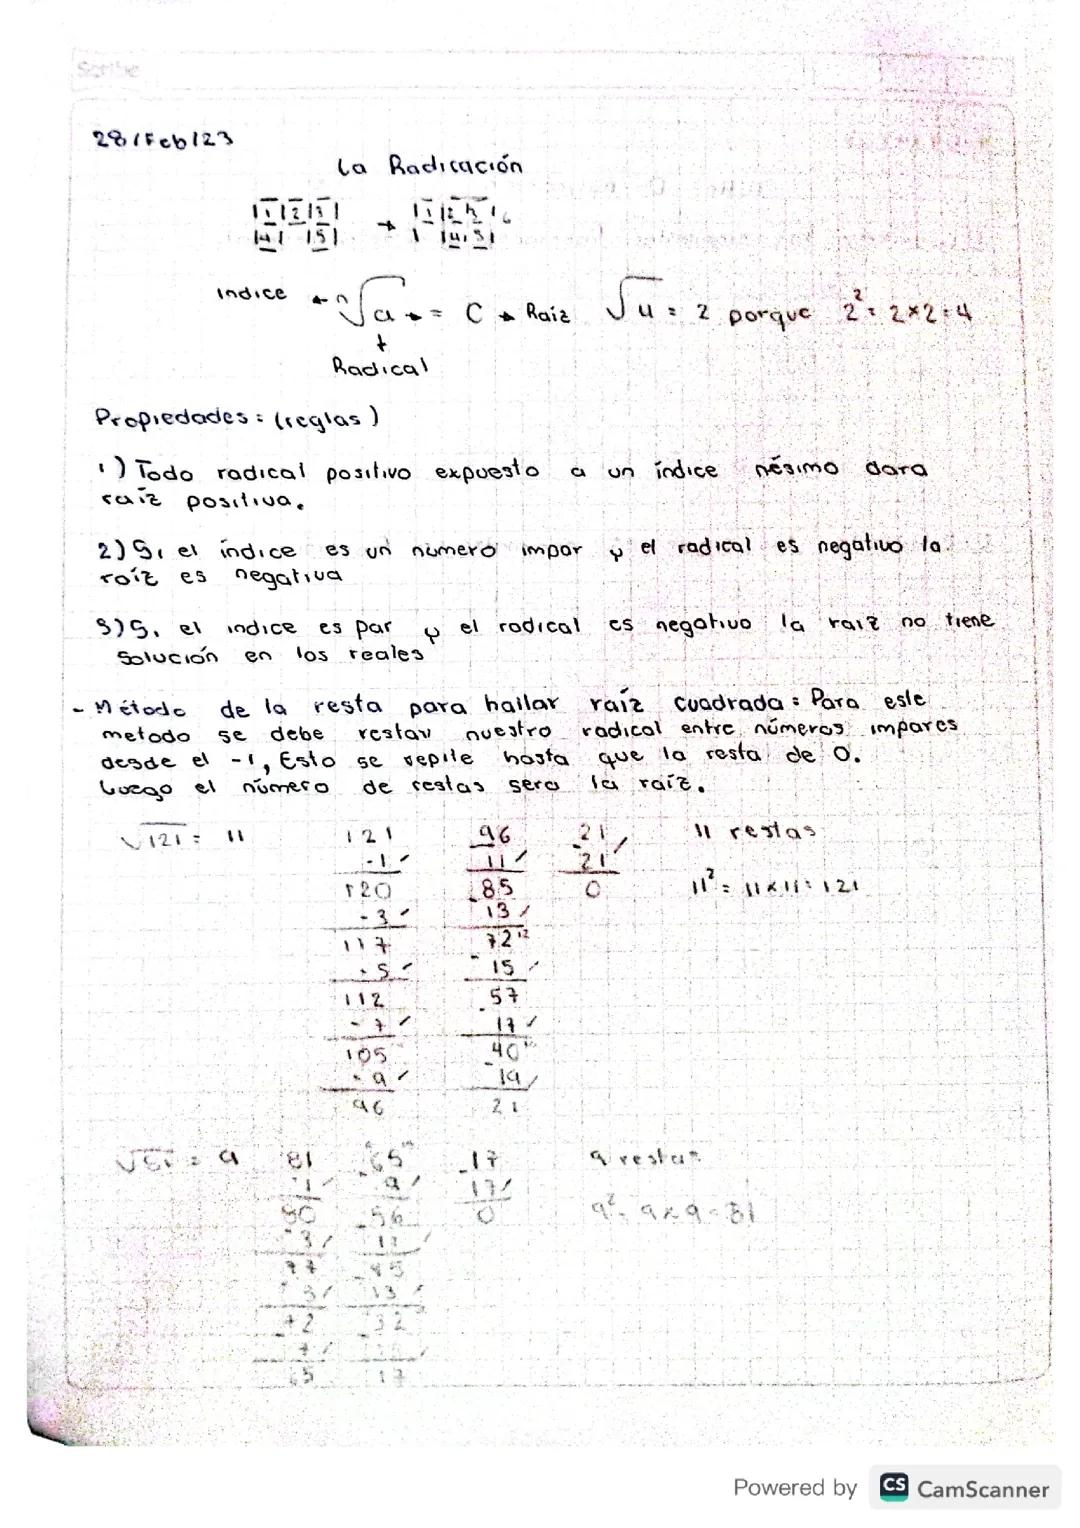 Scribe
28/Feb/23
La Radicación
|1|2|3| → |1|2
|4| |5| | |4|5|
indice ← n√a → = C → Raiz √4 = 2 porque 2² = 2×2=4
Radical
Propiedades: (reglas)
1) Todo radical positivo expuesto a un índice nésimo dara
raíz positiva.
2) Si el índice es un número impar y el radical es negativo la
roíz es negativa
3) Si el indice es par y el radical es negativo la raiz no tiene
solución en los reales
- Método de la resta para hallar raíz cuadrada: Para este
metodo se debe restar nuestro radical entre números impares
desde el -1, Esto se repite hasta que la resta de 0.
Luego el número de restas sera la raíz.
√121 = 11 121 96 21 11 restas
-1 11 -21
120 85 0 11² = 11×11=121
-3 13
117 72
-5 - 15
112 57
-7 - 17
105 40
-9 - 19
96 21
√81 = 9 81 65 17 9 restas
-1 - 9 17
80 56 0 9² = 9×9=81
-3 11
77 45
13
72 32
7
65 17
Powered by CS CamScanner